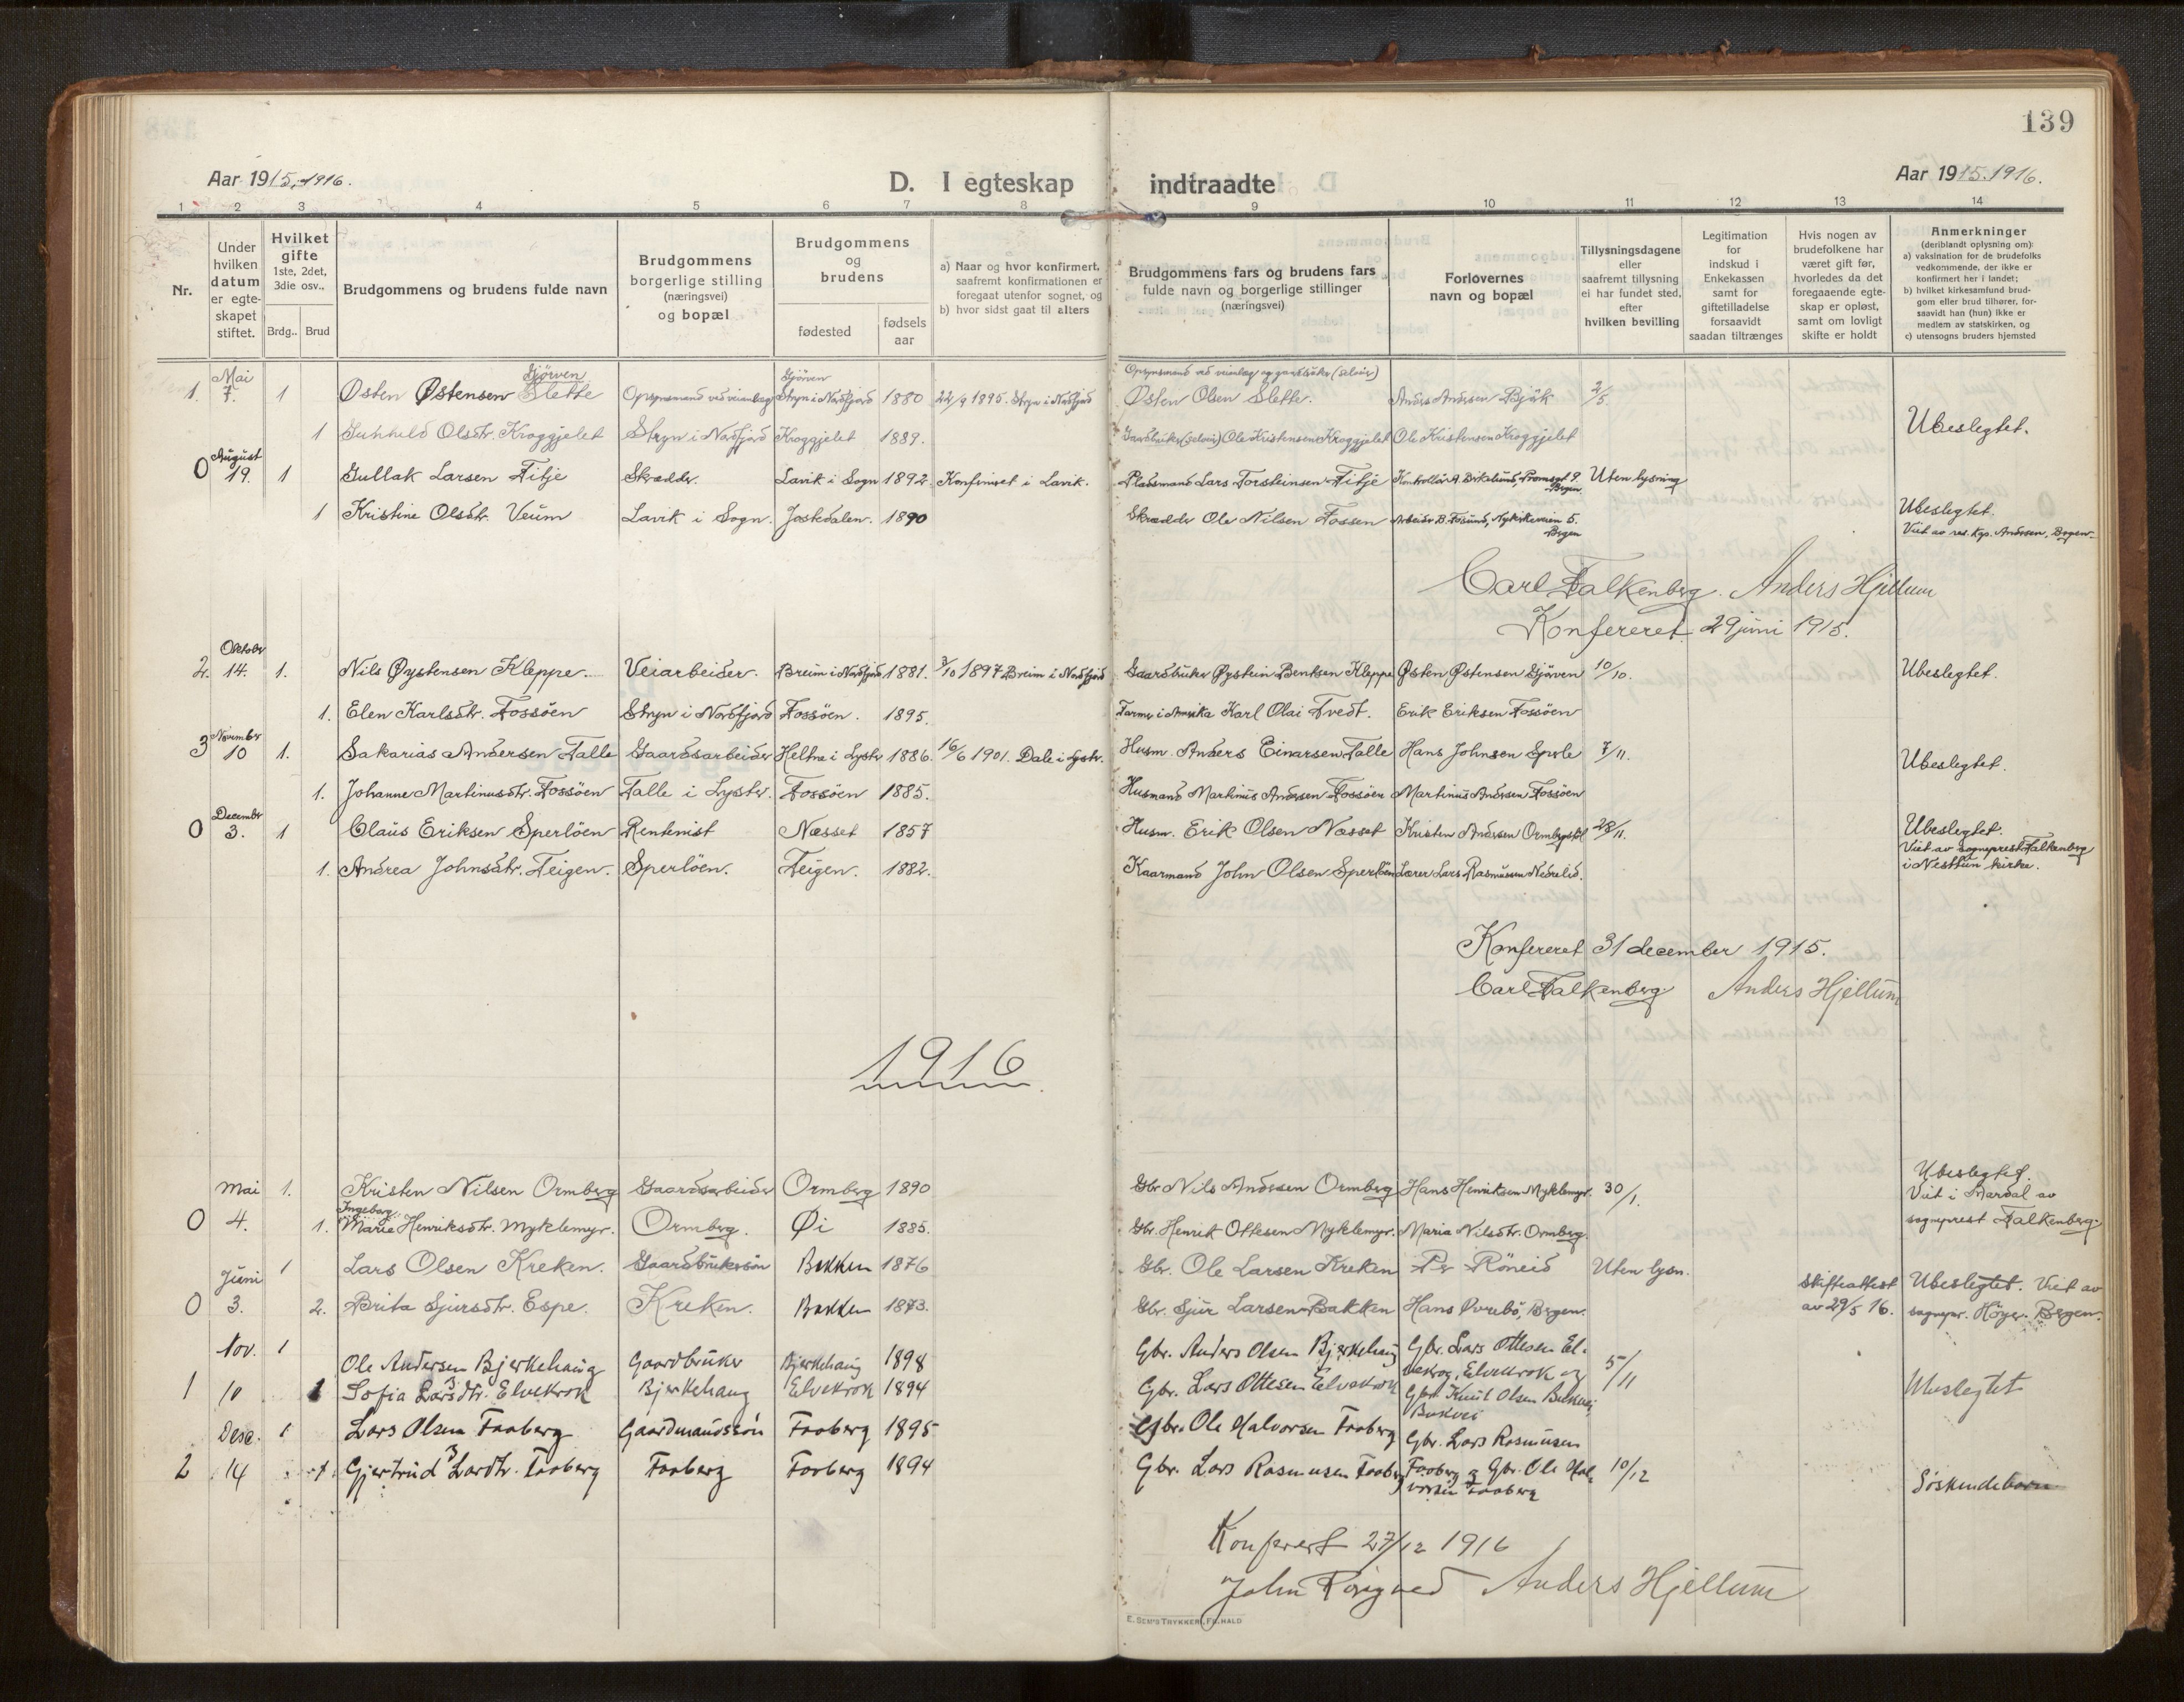 139
Aar 1915,-1916.
D. I egteskap indtraadte
Aar 1915.1916.
1 2 3 4 5 6 7 8 9 10 11 12 13 14
Nr.
Under hvilken datum er egteskapet stiftet.
Hvilket gifte 1ste, 2det, 3die osv.,
Brdg.. Brud
Brudgommens og brudens fulde navn
Brudgommens borgerlige stilling (næringsvei) og bopæl
Brudgommens og brudens
fødested
fødsels aar
a) Naar og hvor konfirmert, saafremt konfirmationen er foregaat utenfor sognet, og
b) hvor sidst gaat til alters
Brudgommens fars og brudens fars fulde navn og borgerlige stillinger (næringsvei)
Forlovernes navn og bopæl
Tillysningsdagene eller saafremt tillysning ei har fundet sted, efter hvilken bevilling
Legitimation for indskud i Enkekassen samt for giftetilladelse forsaavidt saadan tiltrænges
Hvis nogen av brudefolkene har været gift før, hvorledes da det foregaaende egteskap er opløst, samt om lovligt skifte er holdt
Anmerkninger
(deriblandt oplysning om):
a) vaksination for de brudefolks vedkommende, der ikke er konfirmert her i landet;
b) hvilket kirkesamfund brudgom eller brud tilhører, forsaavidt han (hun) ikke er medlem av statskirken, og
c) utensogns bruders hjemsted
Mai Gjörven Gjörven Opsynsmand ved veianlæg og gaardbruker (selveier)
1. 7. 1 Østen Østensen Slette Opsynsmand ved veianlæg Stryn i Nordfjord 1880 22/9 1895. Stryn i Nordfjord Østen Olsen Slette. Anders Andersen Bjåk 2/5.
1 Gunhild Olsdtr. Kroggjelet Stryn i Nordfjord Kroggjelet 1889. Gaardbruker (selveier) Ole Kristensen Kroggjelet Ole Kristensen Kroggjelet Ubeslegtet.
August
0 19. 1 Gullak Larsen Fitje Skrædder. Lavik i Sogn 1892. Konfirmert i Lavik. Pladsmand Lars Torsteinsen Fitje Kontrollör A. Birkelund, Tromsøgt 9. Bergen Uten lysning
1 Kristine Olsdtr. Veum Lavik i Sogn. Jostedalen. 1890 Skrædder Ole Nilsen Fossen Arbeider B. Fosund, Nykirkeveien 5. Bergen Ubeslegtet.
Viet av res. Kap. Andersen, Bergen.
Carl Falkenberg. Anders Hjellum
Konfereret 29 juni 1915.
Oktober
2. 14. 1. Nils Øystensen Kleppe. Veiarbeider. Breim i Nordfjord 1881. 3/10 1897 Breim i Nordfjord Gaardbruker Øystein Bentsen Kleppe Østen Østensen Gjörven 10/10. Ubeslegtet.
1. Elen Karlsdtr. Fossöen Stryn i Nordfjord Fossöen. 1895. Farmer i Amerika Karl Olai Tvedt. Erik Eriksen Fossöen
November
3 10 1. Sakarias Andersen Talle Gaardsarbeider Heltne i Lyster 1886. 16/6 1901. Dale i Lyster. Husm. Anders Einarsen Talle Hans Johnsen Sperle 7/11. Ubeslegtet.
1. Johanne Martinusdtr. Fossöen Talle i Lyster. Fossöen 1885. Husmand Martinus Andersen Fossöen Martinus Andersen Fossöen
December
0 3. 1 Claus Eriksen Sperlöen Rentenist Næsset 1857 Husm. Erik Olsen Næsset Kristen Andersen Ormbergstöl 28/11. Ubeslegtet.
Viet av sogneprest Falkenberg i Nesttun kirke.
1. Andrea Johnsdtr. Teigen. Sperlöen. Teigen. 1882. Kaarmand John Olsen Sperlöen Lærer Lars Rasmussen Nedrelid.
Konfereret 31 december 1915.
Carl Falkenberg Anders Hjellum
1916
Mai 1. Kristen Nilsen Ormberg Gaardsarbeider Ormberg 1890 Gbr Nils Andersen Ormberg Hans Henriksen Myklemyr. 30/1. Ubeslegtet.
Viet i Årdal av sogneprest Falkenberg.
Ingeborg
0 4. 1. Marie Henriksdtr. Myklemyr. Ormberg. Øi 1885. Gbr. Henrik Ottesen Myklemyr. Maria Nilsdtr. Ormberg.
Juni 1 Lars Olsen Kreken. Gaardbrukersön Bakken 1876 Gbr. Ole Larsen Kreken Per Röneid Uten lysn. Skifteattest av 29/5 16. Ubeslegtet. Viet av sognepr. Höyer Bergen.
0 3. 2. Brita Sjursdtr. Espe. Kreken. Bakken 1873. Gbr. Sjur Larsen Bakken Hans Øvrebö, Bergen.
Nov. 1 Ole Andersen Bjerkehaug Gaardbruker Bjerkehaug 1898 Gbr. Anders Olsen Bjerkehaug Gbr. Lars Ottesen Elvekrog, Elvekrok og 5/11
1 10 1 Sofia Larsdtr. Elvekrok Bjerkehaug Elvekrok 1894 Gbr. Lars Ottesen Elvekrok Gbr. Knut Olsen Bukvei, Bukvei Ubeslegtet
Dese. 1 Lars Olsen Faaberg Gaardmandssön Faaberg 1895 Gbr. Ole Halvorsen Faaberg Gbr. Lars Rasmusen
2 14 1 Gjertrud Larsdtr. Faaberg Faaberg Faaberg 1894 Gbr. Lars Rasmusen Faaberg Faaberg og Gbr. Ole Halvorsen Faaberg 10/12 Söskendebarn
Konferert 27/12 1916
John Anders Hjellum
E. SEM'S TRYKKERI, FR.HALD